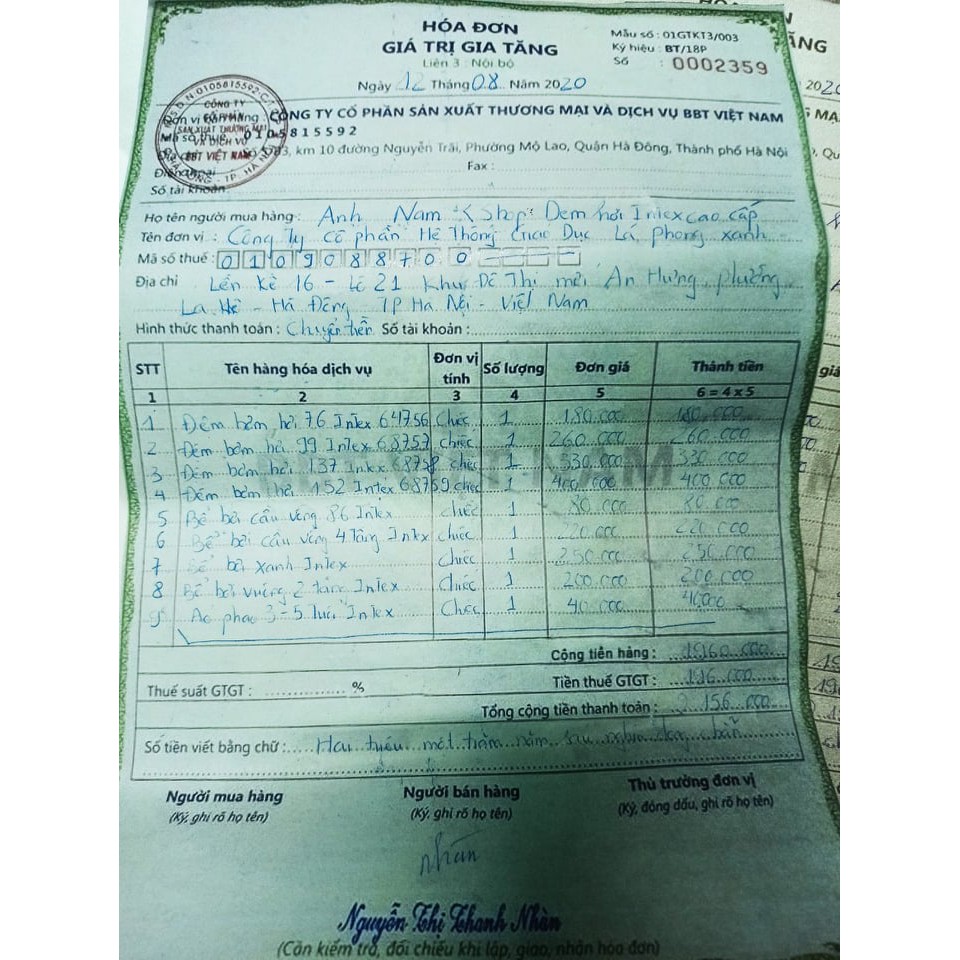 HÓA ĐƠN
GIÁ TRỊ GIA TĂNG
Liên 3 : Nội bộ
Ngày 12 Tháng 08 Năm 2020
Mẫu số : 01GTKT3/003
Ký hiệu : BT/18P
Số : 0002359
Đơn vị bán hàng : CÔNG TY CỔ PHẦN SẢN XUẤT THƯƠNG MẠI VÀ DỊCH VỤ BBT VIỆT NAM
Mã số thuế : 0105815592
km 10 đường Nguyễn Trãi, Phường Mộ Lao, Quận Hà Đông, Thành phố Hà Nội
Điện thoại Fax :
Số tài khoản:
Họ tên người mua hàng : Anh Nam Shop: Đệm hơi Intex cao cấp
Tên đơn vị : Công ty cổ phần Hệ Thống Giáo Dục Lá phong xanh
Mã số thuế : 0109088700
Địa chỉ Liền kề 16 - Lô 21 Khu Đô Thị mới An Hưng, phường
La Khê - Hà Đông TP Hà Nội - Việt Nam
Hình thức thanh toán : Chuyển tiền Số tài khoản :
STT Tên hàng hóa dịch vụ Đơn vị tính Số lượng Đơn giá Thành tiền
1 2 3 4 5 6 = 4 x 5
1 Đệm bơm hơi 76 Intex 64756 Chiếc 1 180.000 180.000
2 Đệm bơm hơi 99 Intex 68757 chiếc 1 260.000 260.000
3 Đệm bơm hơi 137 Intex 68758 chiếc 1 330.000 330.000
4 Đệm bơm hơi 152 Intex 68759 chiếc 1 400.000 400.000
5 Bể bơi cầu vồng 86 Intex chiếc 1 80.000 80.000
6 Bể bơi cầu vồng 4 tầng Intex chiếc 1 220.000 220.000
7 Bể bơi xanh Intex Chiếc 1 250.000 250.000
8 Bể bơi vuông 2 tầng Intex Chiếc 1 200.000 200.000
9 Áo phao 3-5 tuổi Intex Chiếc 1 40.000 40.000
Cộng tiền hàng : 1.960.000
Thuế suất GTGT : % Tiền thuế GTGT : 196.000
Tổng cộng tiền thanh toán : 2.156.000
Số tiền viết bằng chữ : Hai triệu một trăm năm sáu nghìn đồng chẵn
Người mua hàng Người bán hàng Thủ trưởng đơn vị
(Ký, ghi rõ họ tên) (Ký, ghi rõ họ tên) (Ký, đóng dấu, ghi rõ họ tên)
nhàn
Nguyễn Thị Thanh Nhàn
(Cần kiểm tra, đối chiếu khi lập, giao, nhận hóa đơn)